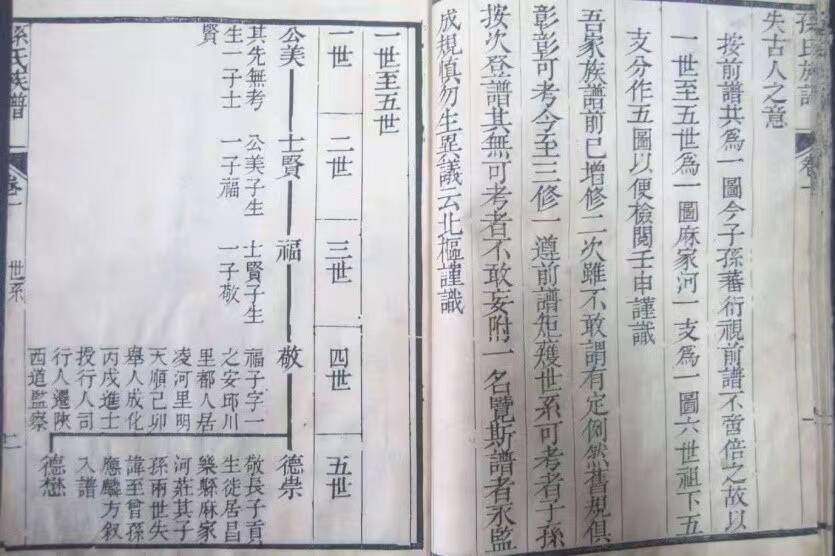 孫氏族譜 卷一
失古人之意
按前譜共為一圖今子孫蕃衍視前譜不啻倍之故以
一世至五世為一圖麻家河一支為一圖六世祖下五
支分作五圖以便檢閱壬申謹識
吾家族譜前已增修二次雖不敢謂有定例然舊規俱
彰彰可考今至三修一遵前譜矩矱世系可考者子孫
按次登譜其無可考者不敢妄附一名覽斯譜者永監
成規慎勿生異議云北樞謹識
一世至五世
一世 二世 三世 四世 五世
公美 士賢 福 敬 德崇
其先無考
生一子士
賢
公美子生
一子福
士賢子生
一子敬
福子字一
之安邱川
里都人居
凌河里明
天順己卯
舉人成化
丙戌進士
授行人司
行人遷陝
西道監察
敬長子貢
生徙居昌
樂縣麻家
河莊其子
孫兩世失
諱至曾孫
應麟方叙
入譜
德懋
孫氏族譜 卷一 世系 二